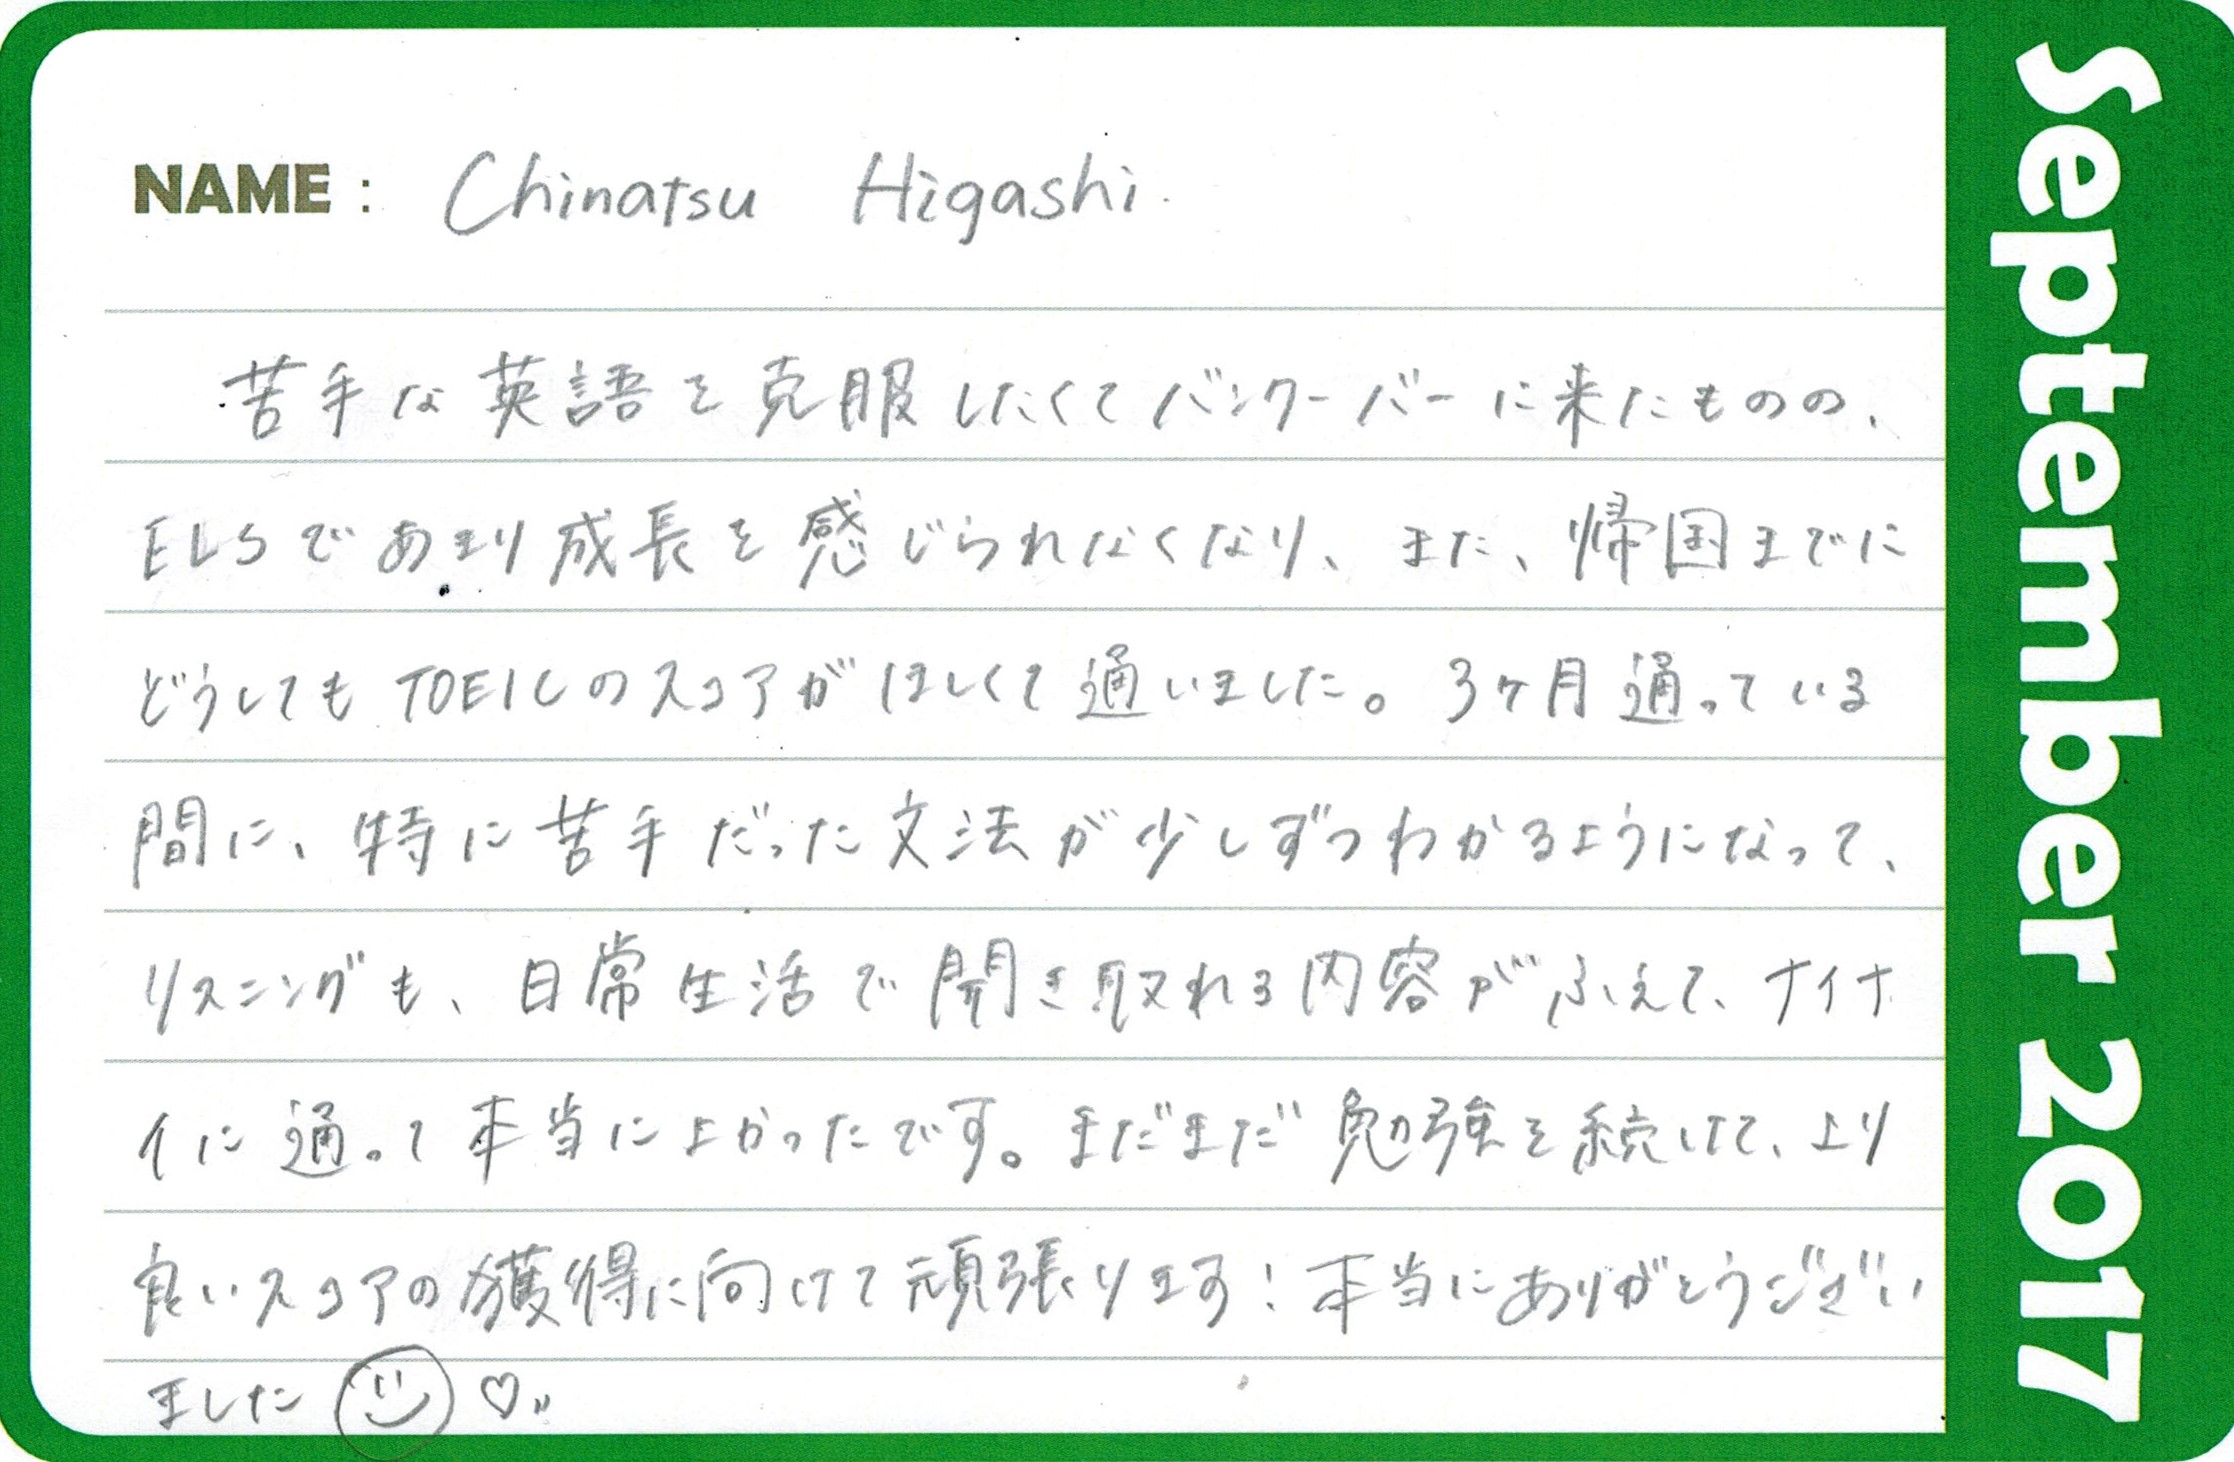 NAME : Chinatsu Higashi.
苦手な英語を克服したくてバンクーバーに来たものの、
ELSであまり成長を感じられなくなり、また、帰国までに
どうしてもTOEICのスコアがほしくて通いました。3ヶ月通っている
間に、特に苦手だった文法が少しずつわかるようになって、
リスニングも、日常生活で聞き取れる内容がふえて、ナイナ
イに通って本当によかったです。まだまだ勉強を続けて、より
良いスコアの獲得に向けて頑張ります!本当にありがとうござい
ました
September 2017